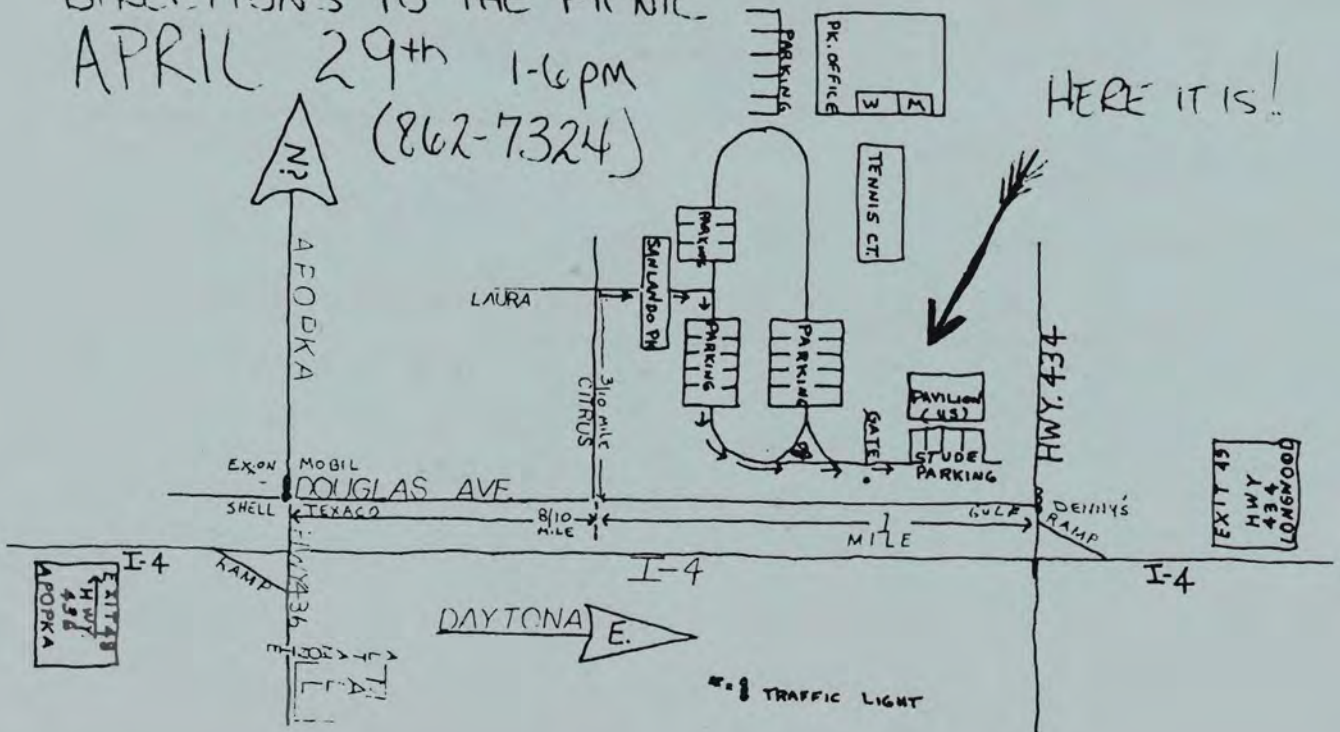 DIRECTIONS TO THE PICNIC
APRIL 29th 1-6pm
(862-7324)
HERE IT IS!
N?
APOPKA
PARKING
PK. OFFICE
W M
TENNIS CT.
PARKING
SANLANDO PK
LAURA
PARKING
PARKING
3/10 MILE
CITRUS
GATE
PAVILION
(US)
STUDE
PARKING
HWY. 434
EXXON MOBIL
DOUGLAS AVE.
SHELL TEXACO
8/10
MILE
1
MILE
GULF
DENNY'S
RAMP
EXIT 49
HWY
434
LONGWOOD
I-4
I-4
I-4
RAMP
HWY 436
EXIT 48
HWY.
436
APOPKA
DAYTONA E.
ALTAMONTE
MALL
= TRAFFIC LIGHT